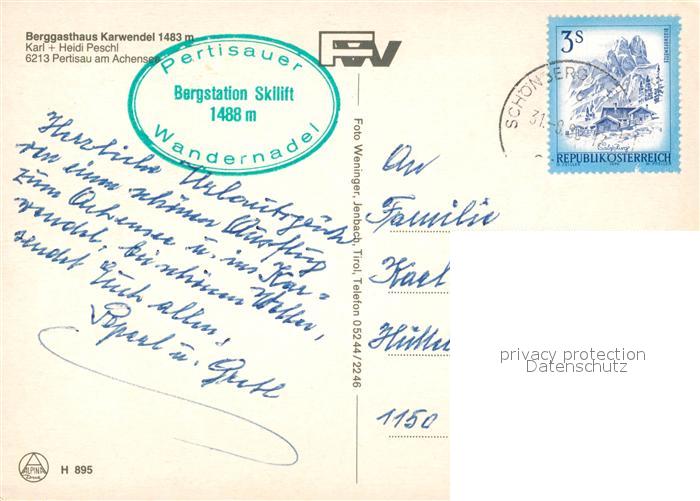 Berggasthaus Karwendel 1483 m
Karl + Heidi Peschl
6213 Pertisau am Achensee
Pertisauer
Bergstation Skilift
1488 m
Wandernadel
Herzliche Urlaubsgrüße
von einem schönen Ausflug
zum Achensee u. ins Kar=
wendel, bei schönem Wetter,
sendet Euch allen!
u. Grete
ALPINA
H 895
Foto Weninger, Jenbach, Tirol, Telefon 05244/2246
3S
SCHÖNBERG
REPUBLIK ÖSTERREICH
An
Familie
Karl
1150
privacy protection
Datenschutz